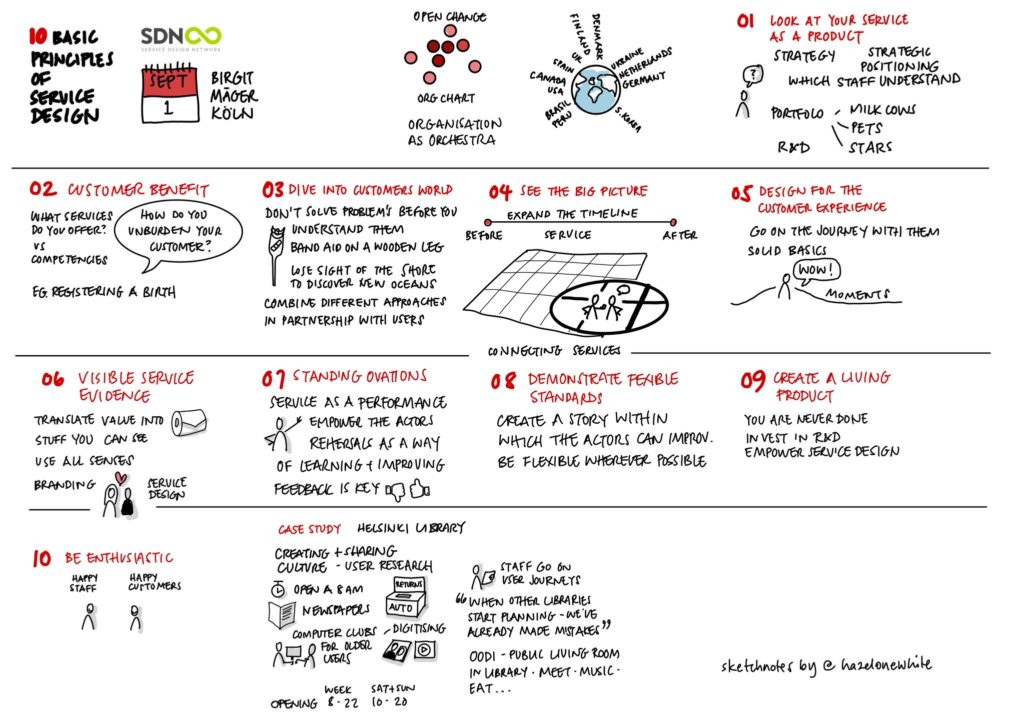 10 BASIC
PRINCIPLES
OF
SERVICE
DESIGN
SDN
SERVICE DESIGN NETWORK
SEPT
1
BIRGIT
MÄGER
KÖLN
OPEN CHANGE
ORG CHART
ORGANISATION
AS ORCHESTRA
DENMARK
FINLAND
UK
SPAIN
CANADA
USA
BRASIL
PERU
UKRAINE
NETHERLANDS
GERMANT
S.KOREA
01 LOOK AT YOUR SERVICE
AS A PRODUCT
STRATEGY
STRATEGIC
POSITIONING
WHICH STAFF UNDERSTAND
?
PORTFOLO
MILK COWS
PETS
STARS
R&D
02 CUSTOMER BENEFIT
WHAT SERVICES
DO YOU OFFER?
VS
COMPETENCIES
HOW DO YOU
UNBURDEN YOUR
CUSTOMER?
EG. REGISTERING A BIRTH
03 DIVE INTO CUSTOMERS WORLD
DON'T SOLVE PROBLEM'S BEFORE YOU
UNDERSTAND THEM
BAND AID ON A WOODEN LEG
LOSE SIGHT OF THE SHORE
TO DISCOVER NEW OCEANS
COMBINE DIFFERENT APPROACHES
IN PARTNERSHIP WITH USERS
04 SEE THE BIG PICTURE
EXPAND THE TIMELINE
BEFORE SERVICE AFTER
CONNECTING SERVICES
05 DESIGN FOR THE
CUSTOMER EXPERIENCE
GO ON THE JOURNEY WITH THEM
SOLID BASICS
WOW!
MOMENTS
06 VISIBLE SERVICE
EVIDENCE
TRANSLATE VALUE INTO
STUFF YOU CAN SEE
USE ALL SENSES
BRANDING
SERVICE
DESIGN
07 STANDING OVATIONS
SERVICE AS A PERFORMANCE
EMPOWER THE ACTORS
REHERSALS AS A WAY
OF LEARNING + IMPROVING
FEEDBACK IS KEY
08 DEMONSTRATE FEXIBLE
STANDARDS
CREATE A STORY WITHIN
WHICH THE ACTORS CAN IMPROV.
BE FLEXIBLE WHEREVER POSSIBLE
09 CREATE A LIVING
PRODUCT
YOU ARE NEVER DONE
INVEST IN R&D
EMPOWER SERVICE DESIGN
10 BE ENTHUSIASTIC
HAPPY
STAFF
HAPPY
CUSTOMERS
CASE STUDY HELSINKI LIBRARY
CREATING + SHARING
CULTURE - USER RESEARCH
OPEN @ 8AM
NEWSPAPERS
RETURNS
AUTO
COMPUTER CLUBS
FOR OLDER
USERS
DIGITISING
WEEK SAT+SUN
OPENING 8-22 10-20
STAFF GO ON
USER JOURNEYS
"WHEN OTHER LIBRARIES
START PLANNING - WE'VE
ALREADY MADE MISTAKES"
OODI - PUBLIC LIVING ROOM
IN LIBRARY · MEET · MUSIC ·
EAT...
sketchnotes by @hazelonewhite